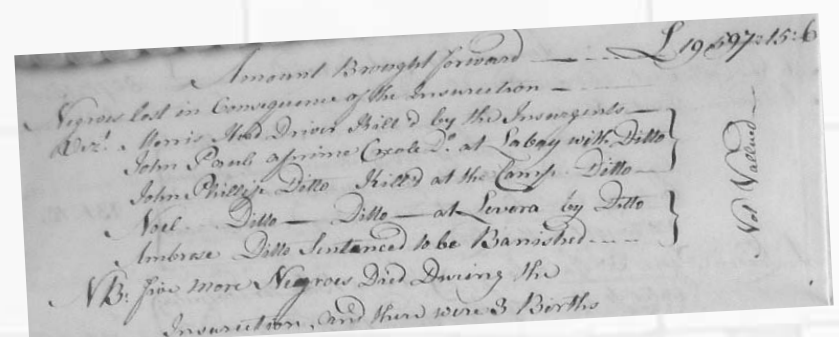 Amount Brought forward — £ 19,597:15:6
Negroes lost in Consequence of the Insurrection —
Vizt. Morris Head Driver Kill'd by the Insurgents —
John Paul a prime Creole Do. at Labay with Ditto
John Phillip Ditto Kill'd at the Camp Ditto —
Noel Ditto — Ditto — at Levera by Ditto
Ambrose Ditto Sentenced to be Banished
Not Vallued —
NB: five more Negroes Died During the
Insurrection, and there were 3 Births